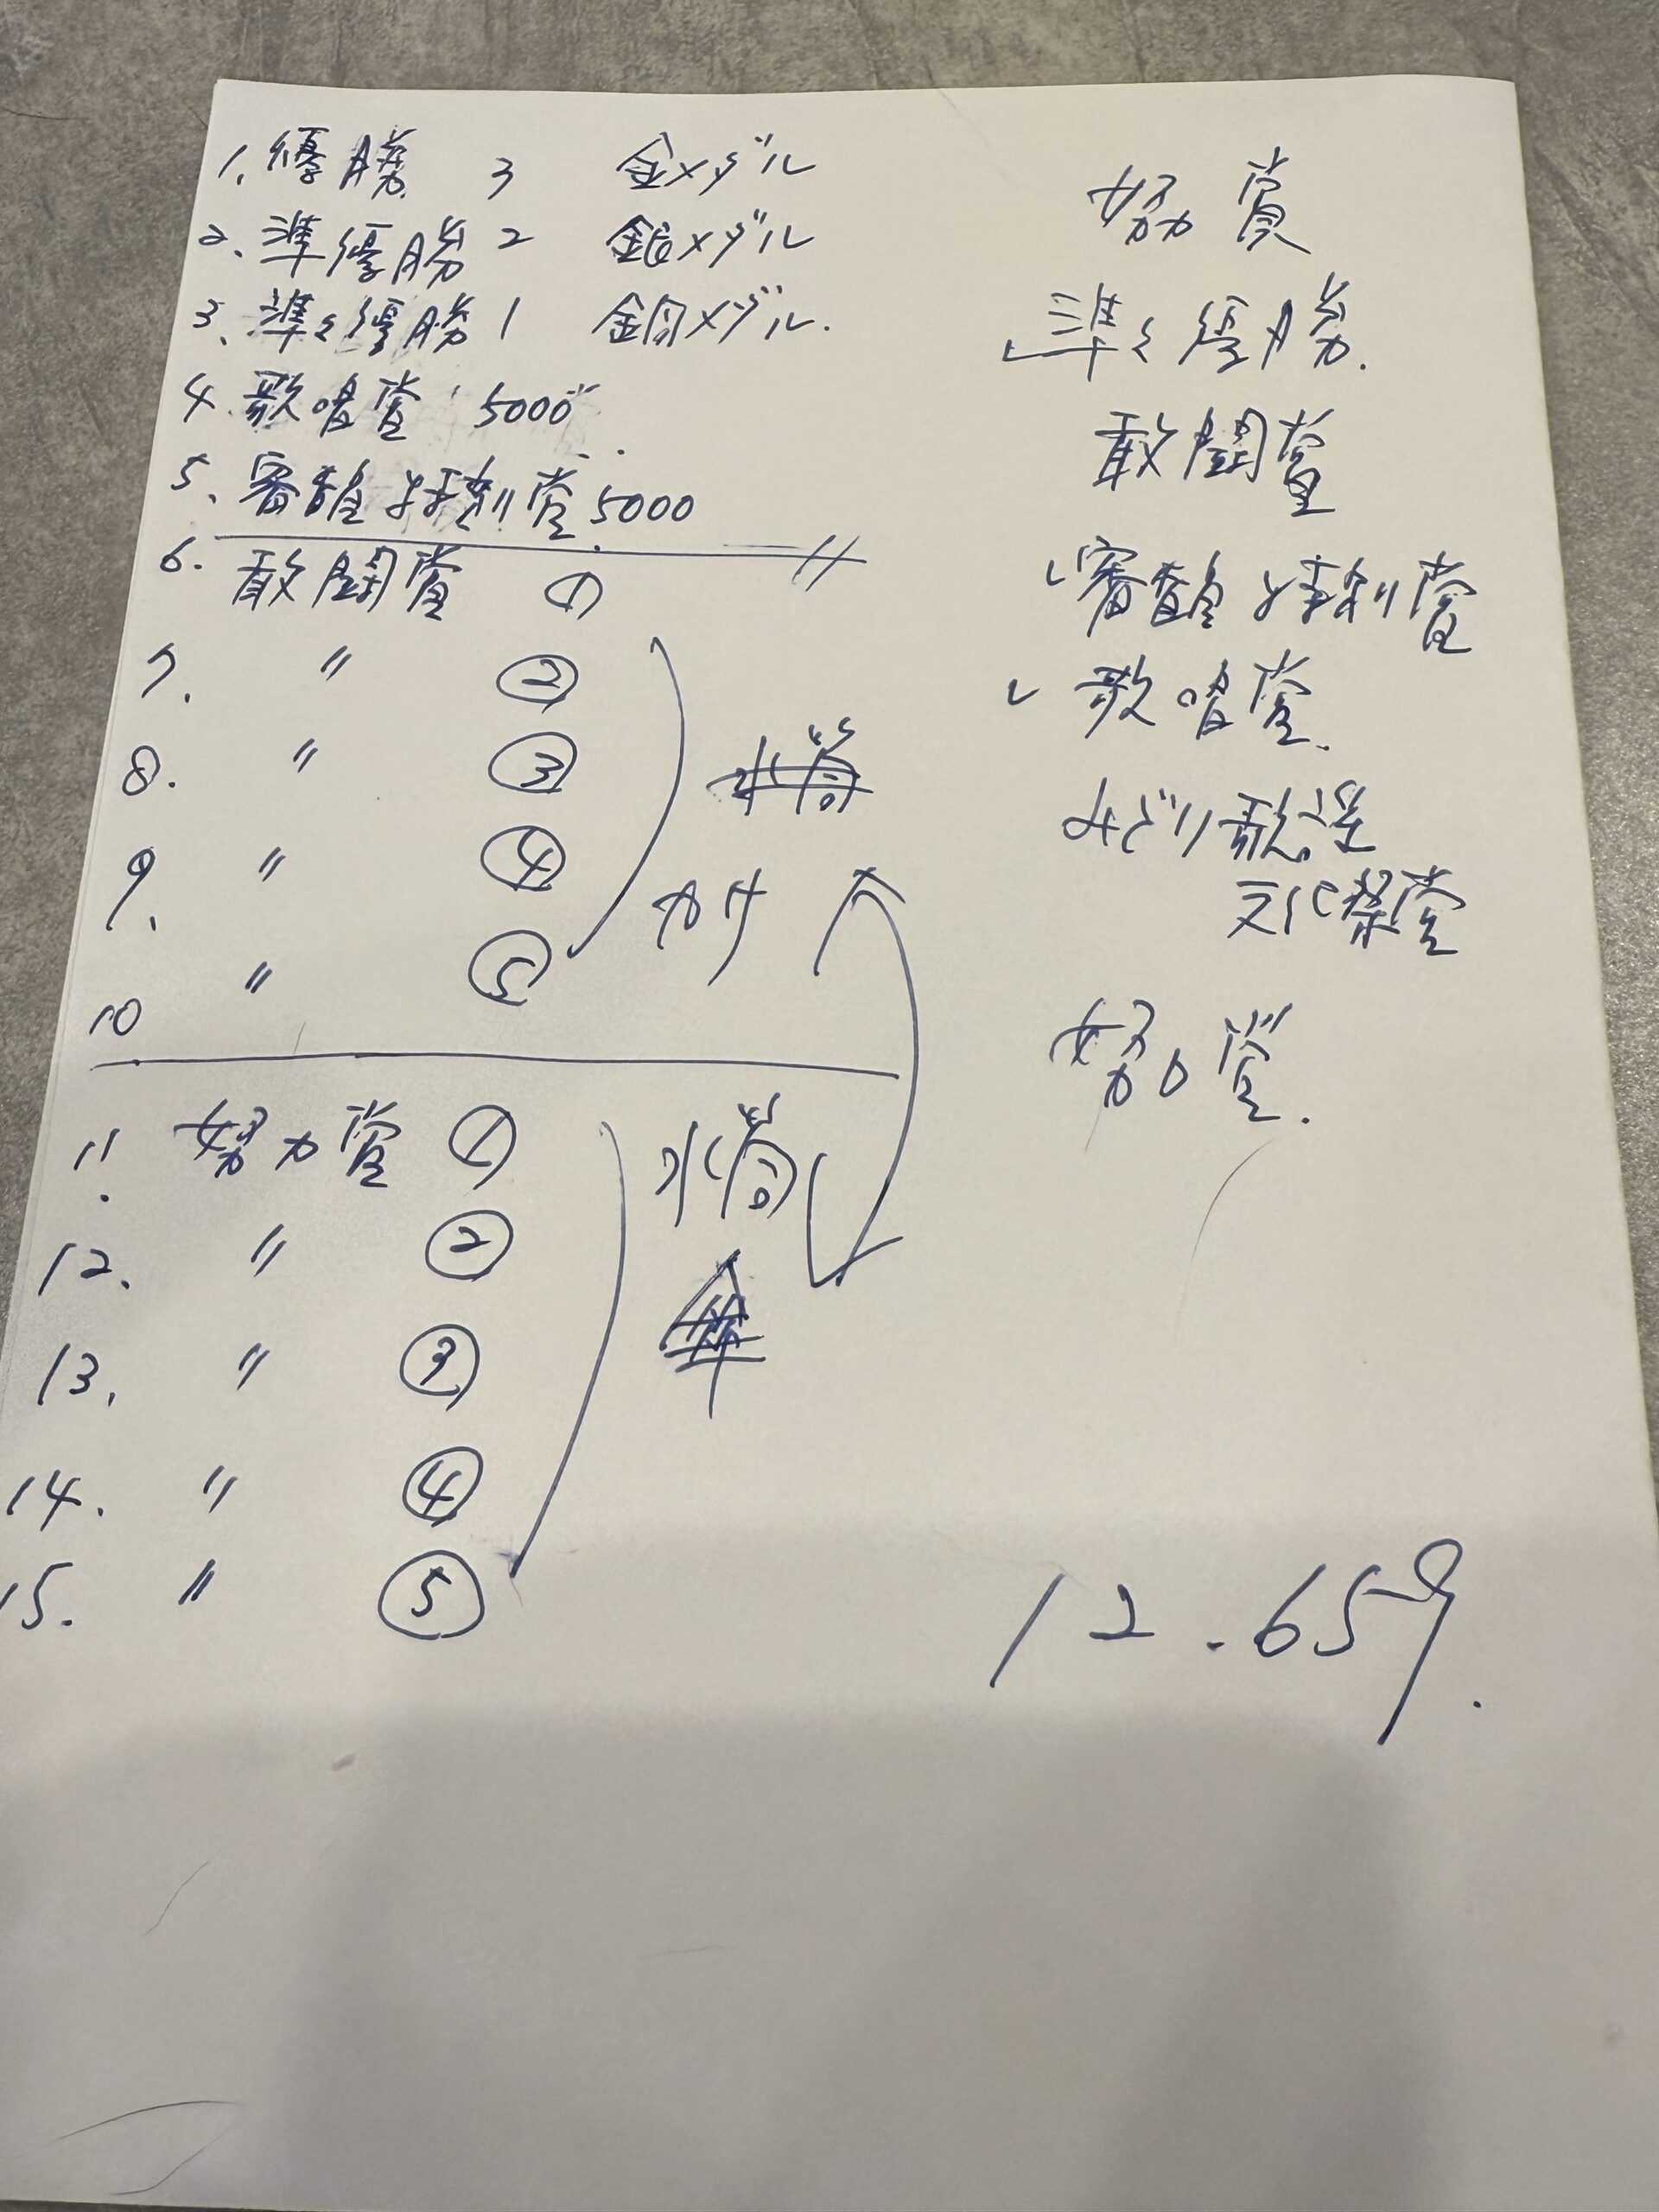 1. 優勝 3 金メダル
2. 準優勝 2 銀メダル
3. 準々優勝 1 銅メダル.
4. 歌唱賞 5000
5. 審査員特別賞 5000
6. 敢闘賞 ①
7. 〃 ②
8. 〃 ③
9. 〃 ④
10 〃 ⑤
水筒
カサ
11. 努力賞 ①
12. 〃 ②
13. 〃 ③
14. 〃 ④
15. 〃 ⑤
水筒
傘
努力賞
準々優勝.
敢闘賞
審査員特別賞
歌唱賞.
みどり歌謡
文化祭賞
努力賞.
12.659.